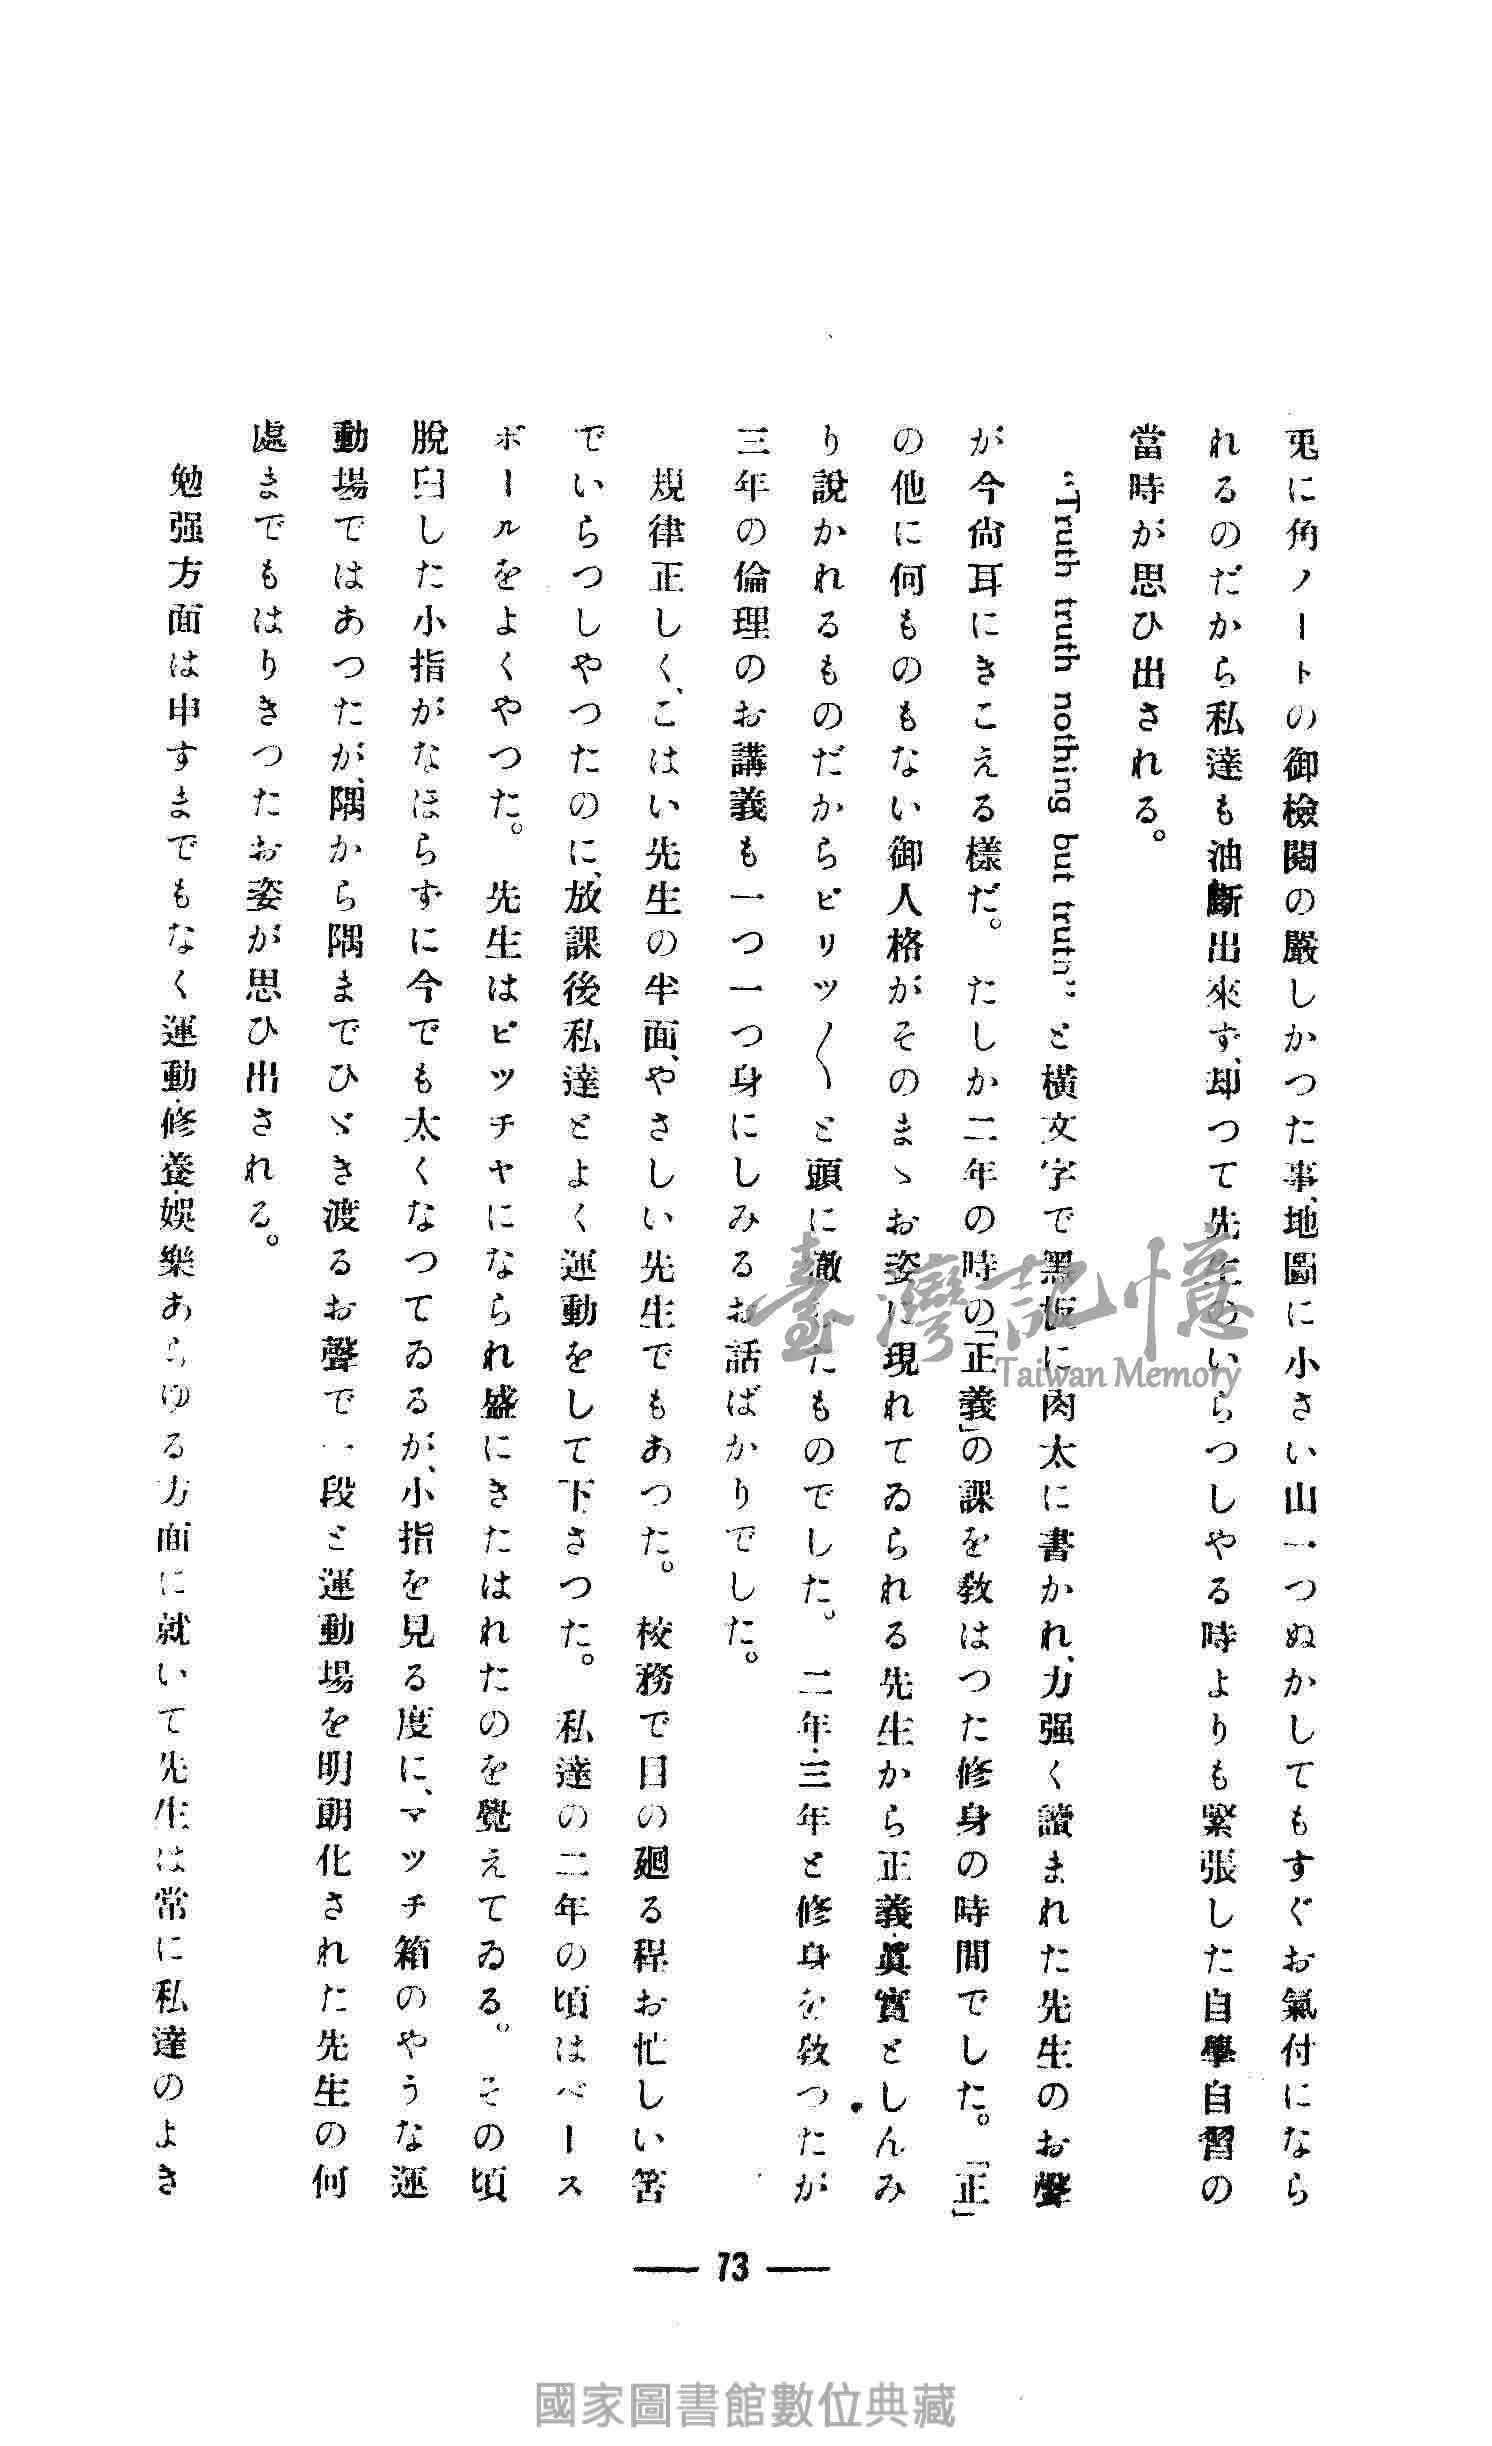 兎に角ノートの御檢閱の嚴しかつた事、地圖に小さい山一つぬかしてもすぐお氣付になら
れるのだから私達も油斷出來ず、却つて先生のいらつしやる時よりも緊張した自學自習の
當時が思ひ出される。
“Truth truth nothing but truth” と橫文字で黑板に肉太に書かれ、力强く讀まれた先生のお聲
が今尙耳にきこえる樣だ。たしか二年の時の「正義」の課を敎はつた修身の時間でした。「正」
の他に何ものもない御人格がそのまゝお姿に現れてゐられる先生から正義・眞實としんみ
り說かれるものだからピリッ〳〵と頭に徹したものでした。二年・三年と修身を敎つたが
三年の倫理のお講義も一つ一つ身にしみるお話ばかりでした。
規律正しく、こはい先生の半面、やさしい先生でもあつた。校務で目の廻る程お忙しい筈
でいらつしやつたのに、放課後私達とよく運動をして下さつた。私達の二年の頃はベース
ボールをよくやつた。先生はピッチャになられ盛にきたはれたのを覺えてゐる。その頃
脫臼した小指がなほらずに今でも太くなつてゐるが、小指を見る度に、マッチ箱のやうな運
動場ではあつたが、隅から隅までひゞき渡るお聲で一段と運動場を明朗化された先生の何
處までもはりきつたお姿が思ひ出される。
勉强方面は申すまでもなく運動・修養・娛樂あらゆる方面に就いて先生は常に私達のよき
73
臺灣記憶
Taiwan Memory
國家圖書館數位典藏